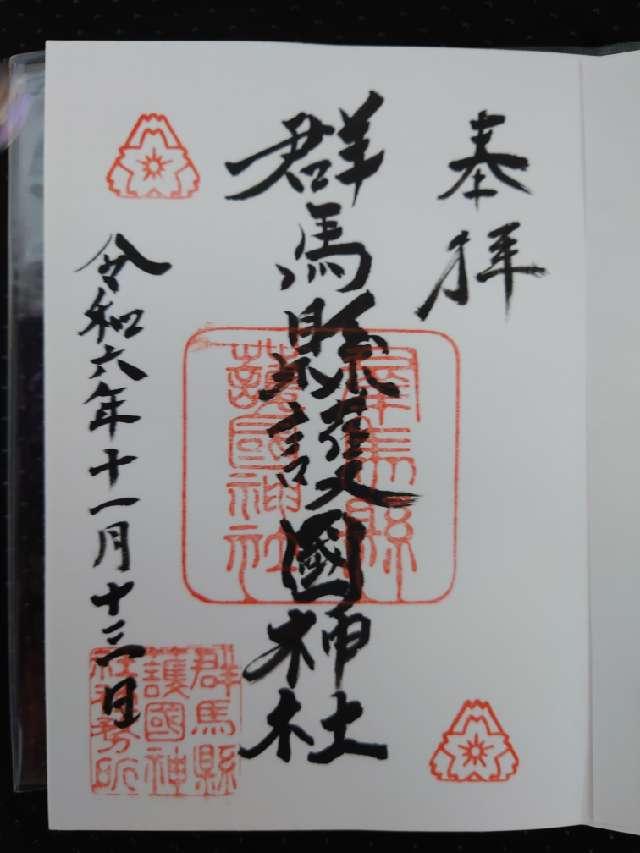 奉拝
群馬縣護國神社
群馬縣護國神社
令和六年十一月十三日
群馬縣護國神社社務所